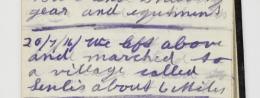 year and equipment
20/7/16/ We left above
and marched to
a village called
Senlis about 6 Miles